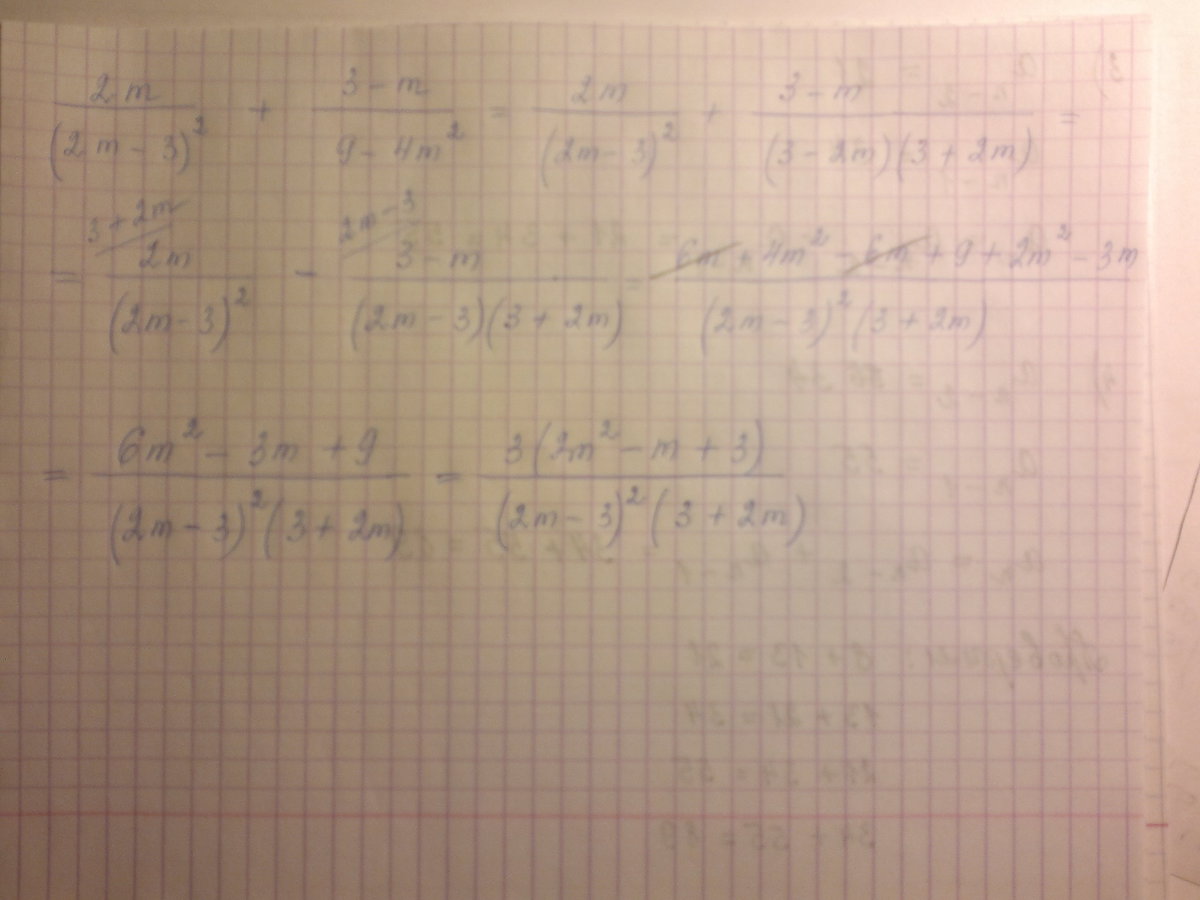 2m/(2m-3)² + (3-m)/(9-4m²) = 2m/(2m-3)² + (3-m)/((3-2m)(3+2m)) =
3+2m 2m-3
= 2m/(2m-3)² - (3-m)/((2m-3)(3+2m)) = (6m+4m²-6m+9+2m²-3m)/((2m-3)²(3+2m))
= (6m²-3m+9)/((2m-3)²(3+2m)) = 3(2m²-m+3)/((2m-3)²(3+2m))